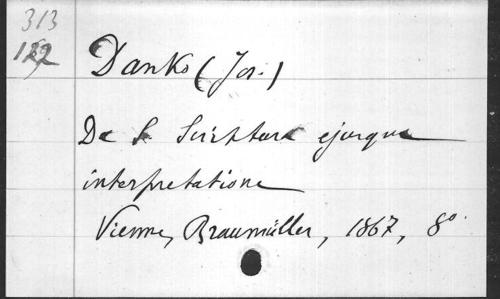 313
122
Danko (Jos.)
De S. Scriptura ejusque
interpretatione
Vienne, Braumüller, 1867, 8°.